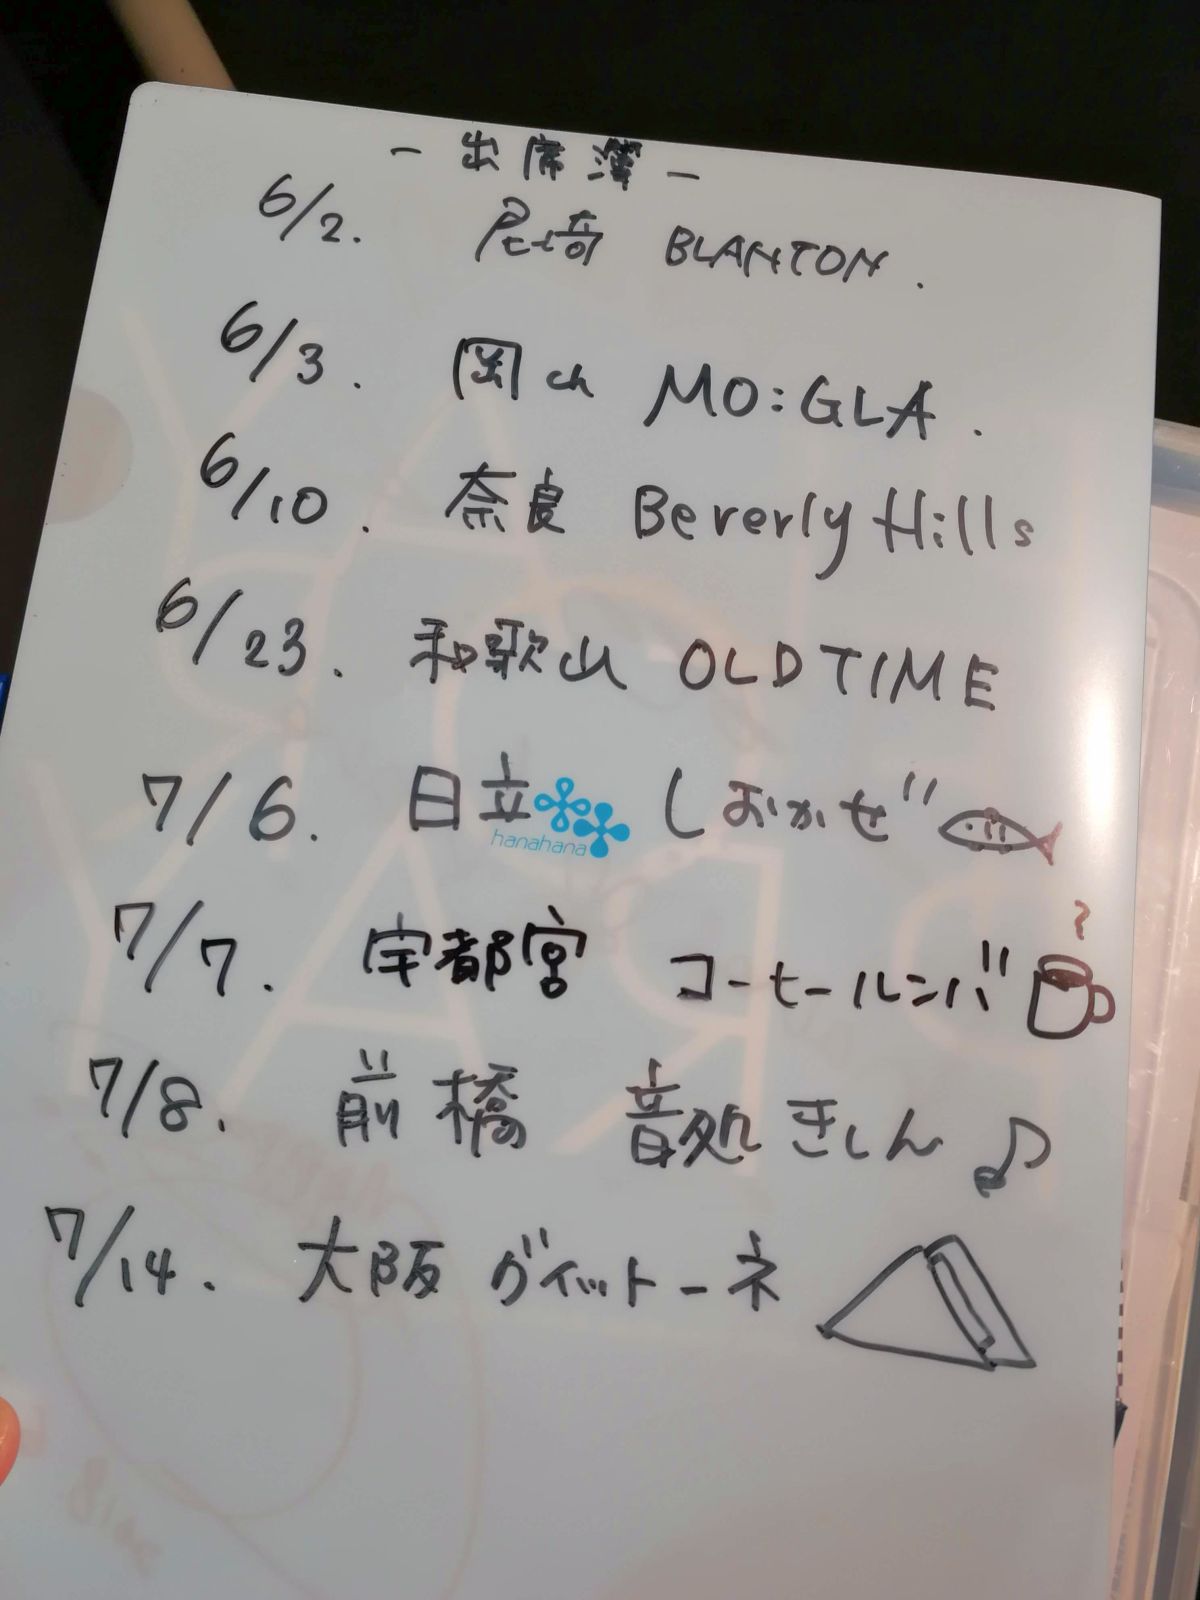 - 出席簿 -
6/2. 尼崎 BLANTON.
6/3. 岡山 MO:GLA.
6/10. 奈良 Beverly Hills
6/23. 和歌山 OLD TIME
7/6. 日立 しおかぜ
hanahana
7/7. 宇都宮 コーヒールンバ
7/8. 前橋 音処きしん
7/14. 大阪 ヴィットーネ